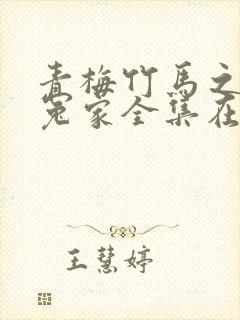 青梅竹马之
冤家全集在
王慧婷